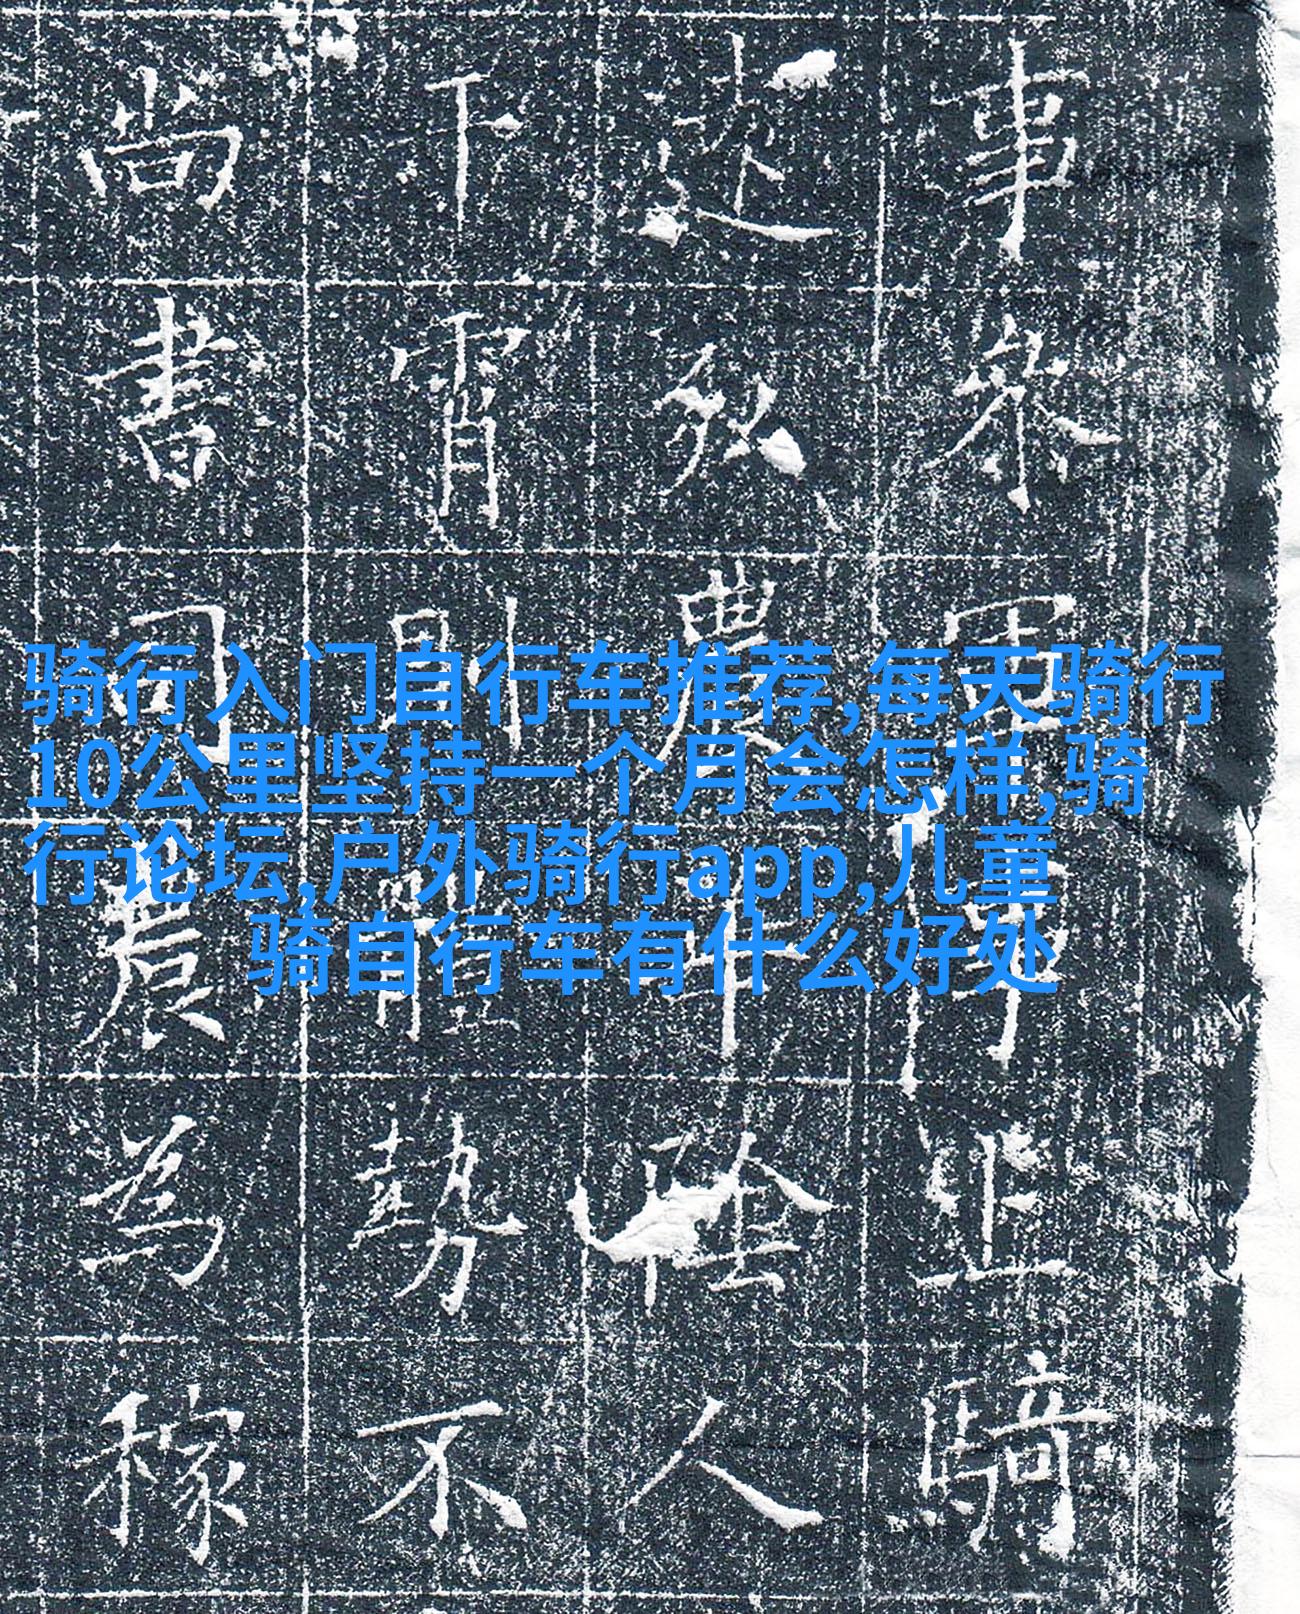 事騎
於農陰人
下霄則體勢不
尚書司農為稼
骑行入门自行车推荐,每天骑行
10公里坚持一个月会怎样,骑
行论坛,户外骑行app,儿童
骑自行车有什么好处